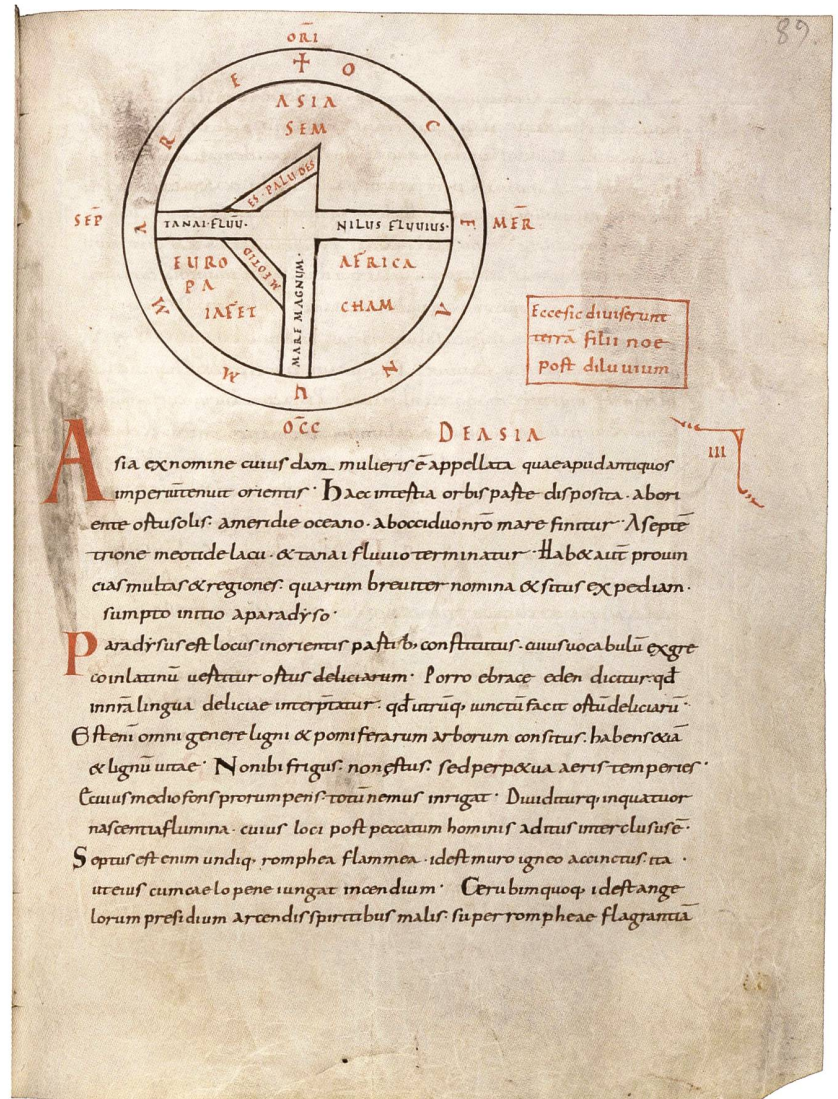 89.
ORĪ
MARE OCEANUM
ASIA
SEM
ES·PALUDES
SEP̄
TANAI·FLUŪ·
NILUS FLUVIUS·
MER̄
MEOTID
EURO
PA
IAFET
AFRICA
CHAM
MARE MAGNUM·
OC̄C
Eccesic diviserunt
terrā filii noe
post diluvium
DEASIA
III
Asia exnomine cuius dam mulieris ē appellata quaeapudantiquos
imperiūtenuit orientis· Haec intertia orbis parte disposita· abori
ente ortusolis· ameridie oceano· aboccīduonr̄o mare finitur· Aseptē
trione meotidelacu· &tanai fluvioterminatur· Hab&aut̄ provin
ciasmultas&regiones· quarum breviter nomina &situs expediam·
sumpto initio aparadyso·
Paradysusest locus inorientis partib; constitutus· cuiusvocabulū exgre
coinlatinū vertitur ortus deliciarum· Porro ebrace eden dicitur· qđ
innr̄a lingua deliciae interp̄tatur· qđutrūq; iunctūfacit ortūdeliciarū·
Esteni omni genere ligni & pomiferarum arborum consitus· habens&iā
&lignū vitae· Nonibifrigus· nonęstus· sedperp&ua aeris temperies·
Ecuiusmedio fonsprorumpens· totūnemus inrigat· Dividiturq; inquatuor
nascentiaflumina· cuius loci postpeccatum hominis aditus interclususē·
Septus est enim undiq; romphea flammea· idestmuro igneo accinctus· ita·
uteius cumcaelo pene iungat incendium· Cerubimquoq; idestange
lorum presidium arcendisspiritibus malis· super rompheae flagrantiā